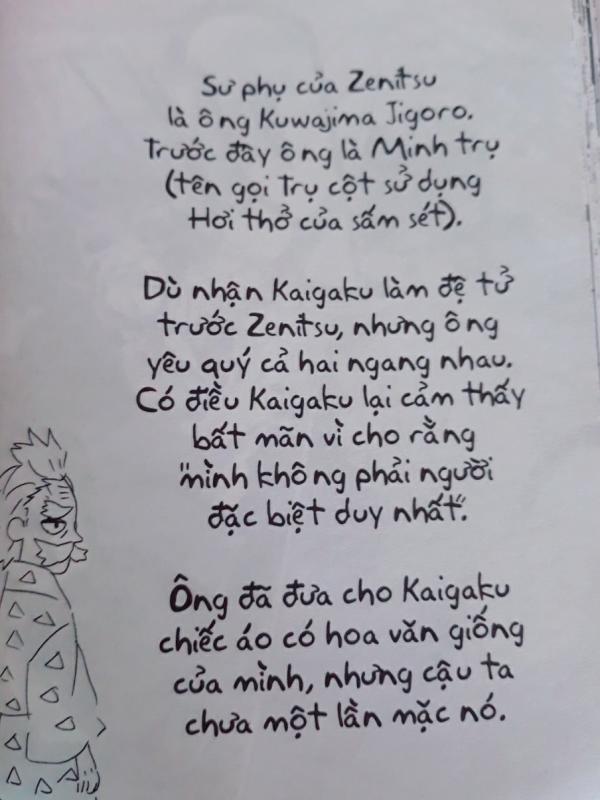 Sư phụ của Zenitsu
là ông Kuwajima Jigoro.
Trước đây ông là Minh trụ
(tên gọi Trụ cột sử dụng
Hơi thở của sấm sét).
Dù nhận Kaigaku làm đệ tử
trước Zenitsu, nhưng ông
yêu quý cả hai ngang nhau.
Có điều Kaigaku lại cảm thấy
bất mãn vì cho rằng
"mình không phải người
đặc biệt duy nhất".
Ông đã đưa cho Kaigaku
chiếc áo có hoa văn giống
của mình, nhưng cậu ta
chưa một lần mặc nó.